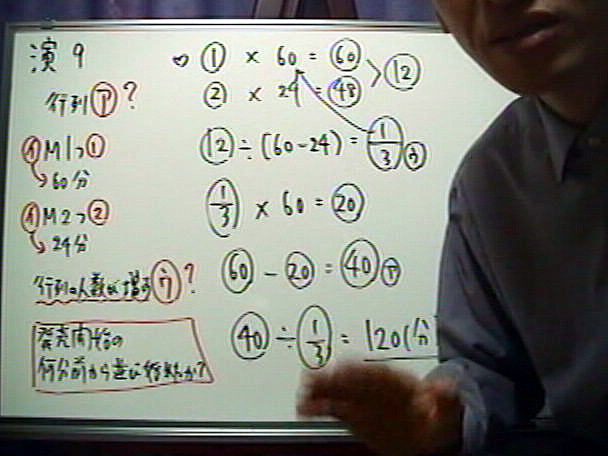 演9
行列㋐?
㋑M1つ①
→60分
㋑M2つ②
→24分
行列の人数が増す㋒?
発売開始の
何分前から並び始めたか?
♡ ① × 60 = ⑥⓪ > ⑫
② × 24 = ㊽
⑫÷(60-24) = 1/3 ㋒
1/3 × 60 = ⑳
60 - ⑳ = ㊵ ㋐
㊵ ÷ 1/3 = 120(分)